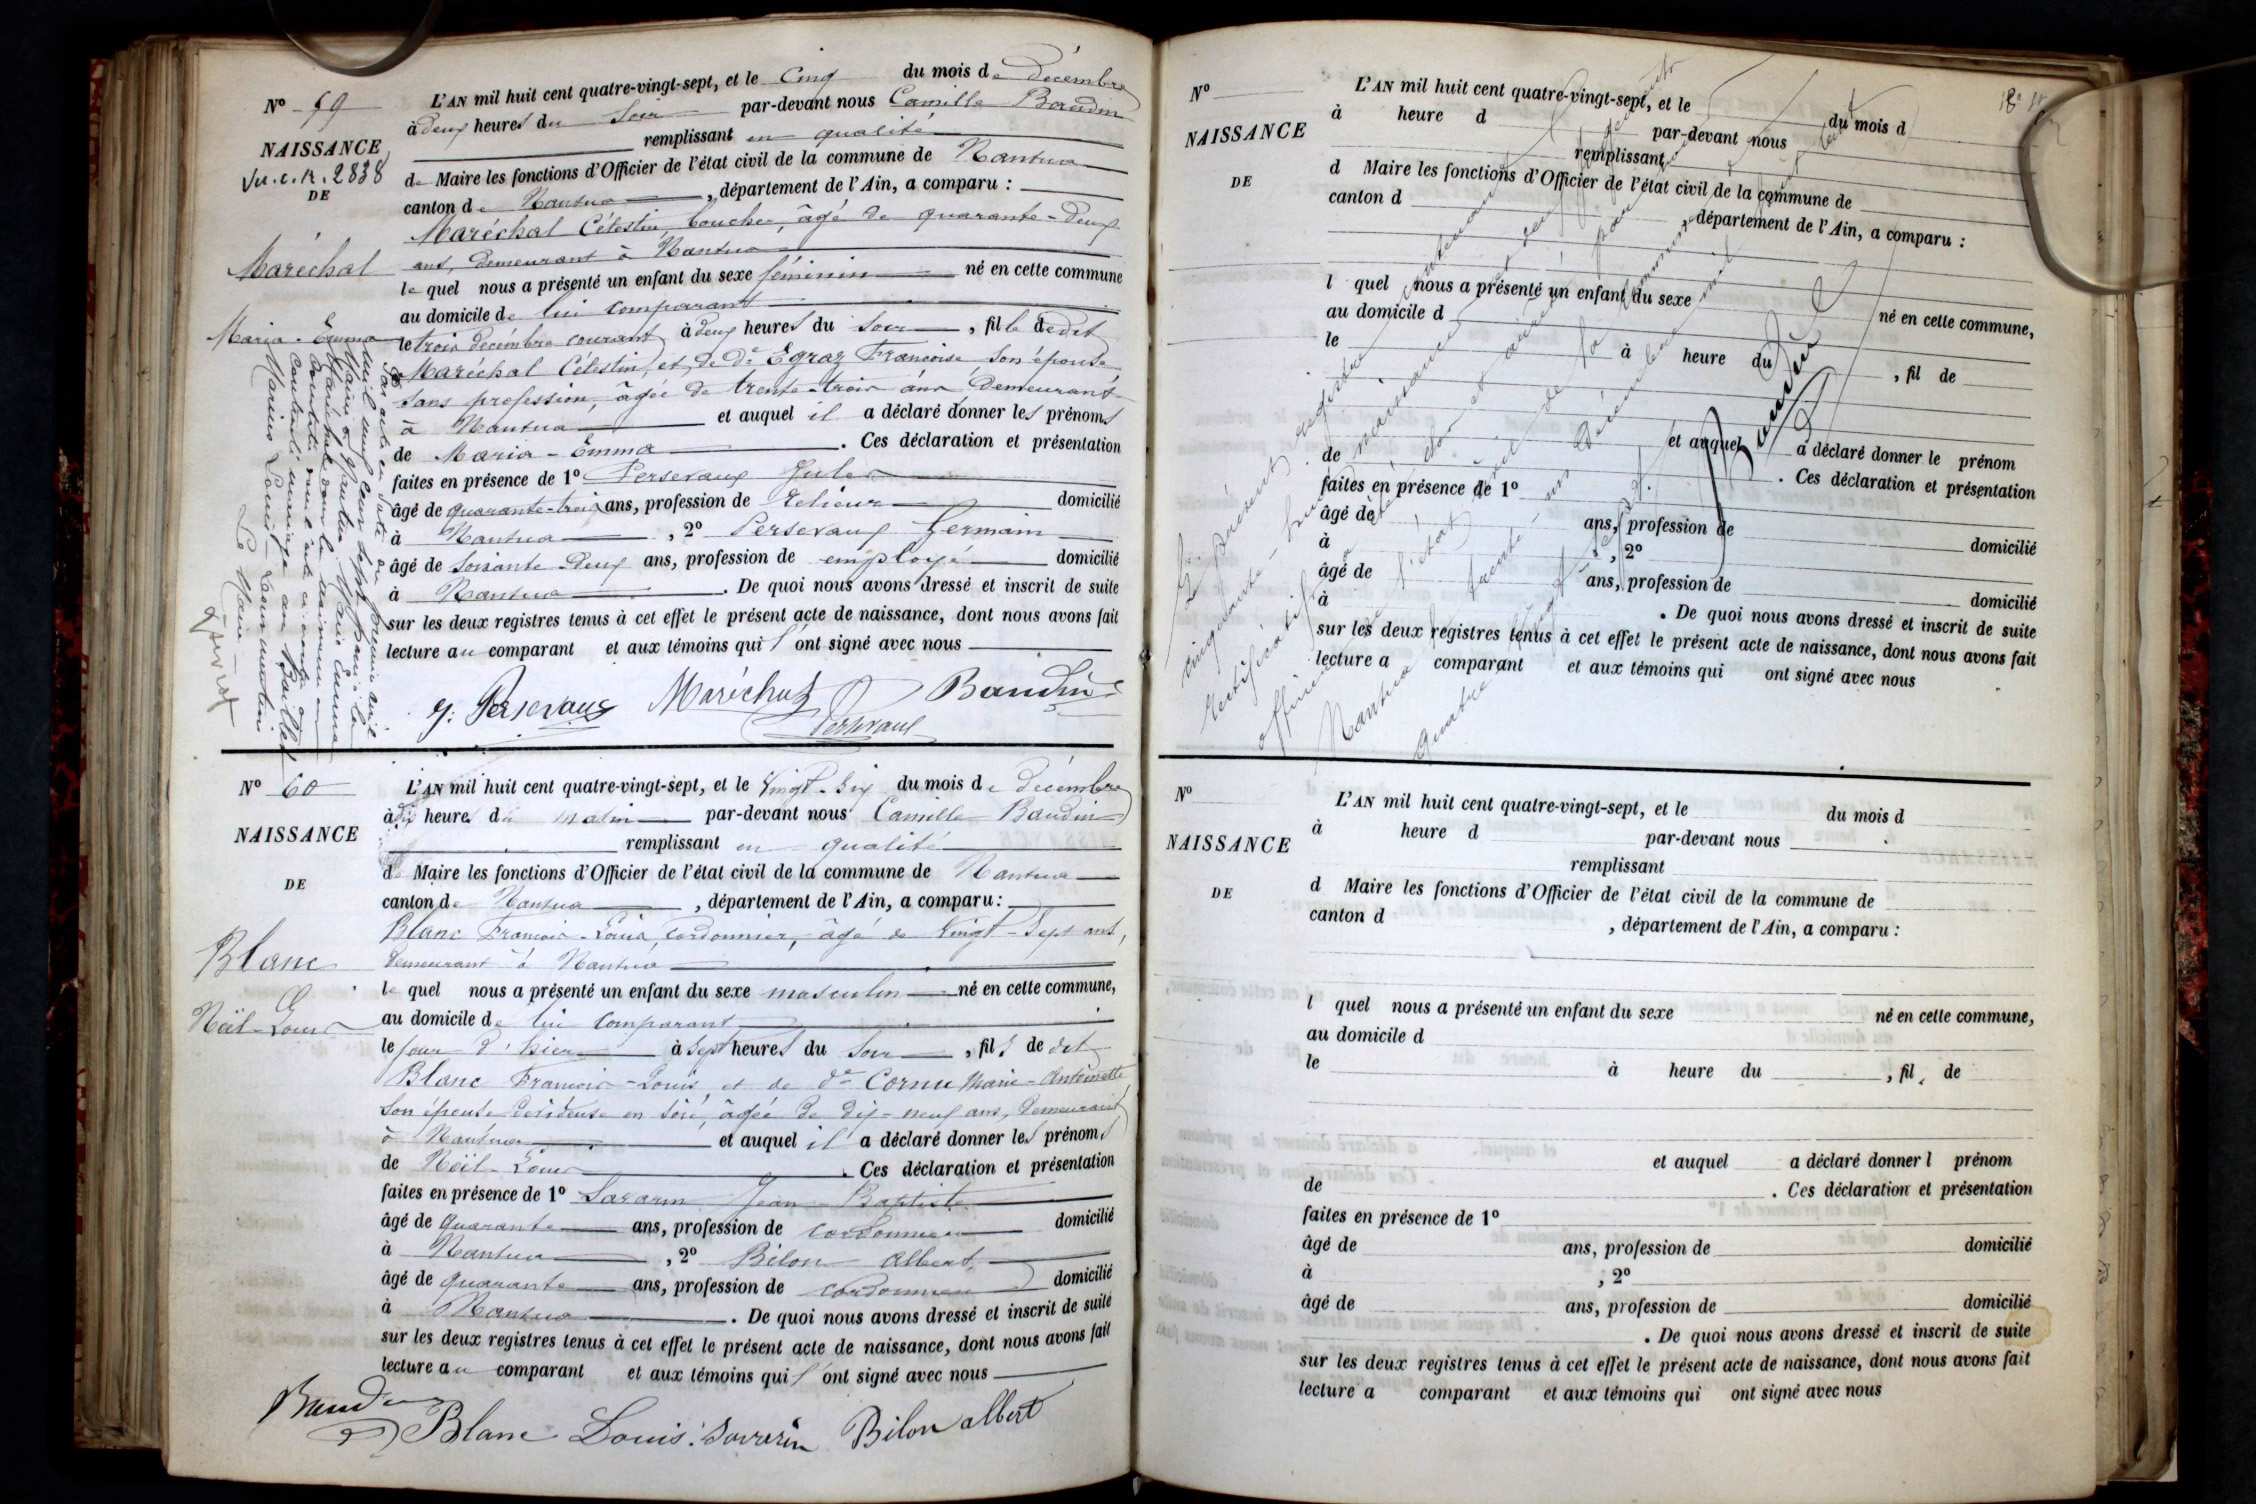 N° 59
NAISSANCE
Vu. c. R. 2838
DE
Maréchal
Maria-Emma
L'AN mil huit cent quatre-vingt-sept, et le Cinq du mois de Décembre
à deux heures du Soir par-devant nous Camille Baudin
remplissant en qualité
de Maire les fonctions d'Officier de l'état civil de la commune de Nantua
canton de Nantua, département de l'Ain, a comparu :
Maréchal Célestin, boucher, âgé de quarante-deux
ans, demeurant à Nantua
lequel nous a présenté un enfant du sexe féminin né en cette commune
au domicile de lui comparant
le trois décembre courant à deux heures du Soir, fille dedit
Maréchal Célestin, et de De Egraz Françoise son épouse
sans profession, âgée de trente-trois ans, demeurant
à Nantua et auquel il a déclaré donner les prénoms
de Maria-Emma. Ces déclaration et présentation
faites en présence de 1° Persevaux Jules
âgé de quarante-trois ans, profession de relieur domicilié
à Nantua, 2° Persevaux Germain
âgé de soixante-deux ans, profession de employé domicilié
à Nantua. De quoi nous avons dressé et inscrit de suite
sur les deux registres tenus à cet effet le présent acte de naissance, dont nous avons fait
lecture au comparant et aux témoins qui l'ont signé avec nous
Par acte en date du premier avril
mil neuf cent sept
Maria Emma
Maréchal dont la naissance
est constatée dans l'acte ci-contre a
contracté mariage
Marius Louis
Le Maire
g. Persevaux Maréchal Baudin
Persevaux
N° 60
NAISSANCE
DE
Blanc
Noël-Louis
L'AN mil huit cent quatre-vingt-sept, et le Vingt-six du mois de décembre
à dix heures du matin par-devant nous Camille Baudin
remplissant en qualité
de Maire les fonctions d'Officier de l'état civil de la commune de Nantua
canton de Nantua, département de l'Ain, a comparu :
Blanc François-Louis, cordonnier, âgé de Vingt-sept ans,
demeurant à Nantua
lequel nous a présenté un enfant du sexe masculin né en cette commune,
au domicile de lui comparant
le jour d'hier à sept heures du Soir, fils de dit
Blanc François-Louis et de De Cornu Marie-Antoinette
son épouse dévideuse en soie, âgée de dix-neuf ans, demeurant
à Nantua et auquel il a déclaré donner les prénoms
de Noël-Louis. Ces déclaration et présentation
faites en présence de 1° Savarin Jean-Baptiste
âgé de quarante ans, profession de cordonnier domicilié
à Nantua, 2° Bilon Albert
âgé de quarante ans, profession de cordonnier domicilié
à Nantua. De quoi nous avons dressé et inscrit de suite
sur les deux registres tenus à cet effet le présent acte de naissance, dont nous avons fait
lecture au comparant et aux témoins qui l'ont signé avec nous
Baudin
Blanc Louis. Savarin Bilon albert
N°
NAISSANCE
DE
L'AN mil huit cent quatre-vingt-sept, et le du mois d
à heure d par-devant nous
remplissant
d Maire les fonctions d'Officier de l'état civil de la commune de
canton d , département de l'Ain, a comparu :
l quel nous a présenté un enfant du sexe né en cette commune,
au domicile d
le à heure du , fil de
et auquel a déclaré donner le prénom
de . Ces déclaration et présentation
faites en présence de 1°
âgé de ans, profession de domicilié
à , 2°
âgé de ans, profession de domicilié
à . De quoi nous avons dressé et inscrit de suite
sur les deux registres tenus à cet effet le présent acte de naissance, dont nous avons fait
lecture a comparant et aux témoins qui ont signé avec nous
Le présent registre contenant
cinquante-huit naissances
certificatifs a été clos et arrêté par
officier de l'état civil de la commune
Nantua
quatre
Baudin
N°
NAISSANCE
DE
L'AN mil huit cent quatre-vingt-sept, et le du mois d
à heure d par-devant nous
remplissant
d Maire les fonctions d'Officier de l'état civil de la commune de
canton d , département de l'Ain, a comparu :
l quel nous a présenté un enfant du sexe né en cette commune,
au domicile d
le à heure du , fil de
et auquel a déclaré donner l prénom
de . Ces déclaration et présentation
faites en présence de 1°
âgé de ans, profession de domicilié
à , 2°
âgé de ans, profession de domicilié
. De quoi nous avons dressé et inscrit de suite
sur les deux registres tenus à cet effet le présent acte de naissance, dont nous avons fait
lecture a comparant et aux témoins qui ont signé avec nous